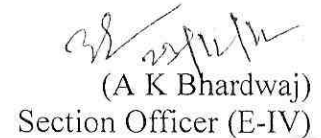 (A K Bhardwaj)
Section Officer (E-IV)